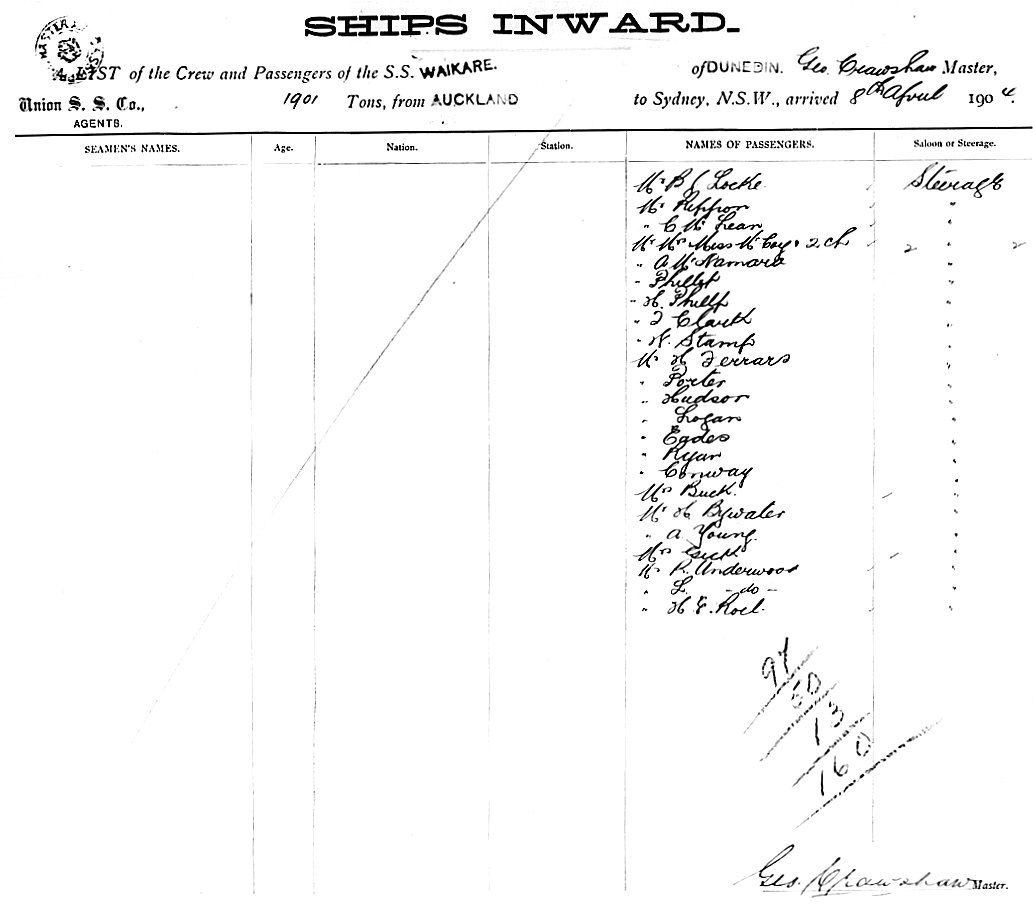 SHIPS INWARD.
A LIST of the Crew and Passengers of the S.S. WAIKARE. of DUNEDIN. Geo. Crawshaw Master,
Union S. S. Co., 1901 Tons, from AUCKLAND to Sydney, N.S.W., arrived 8th April 1904.
AGENTS.
SEAMEN'S NAMES. Age. Nation. Station. NAMES OF PASSENGERS. Saloon or Steerage.
Mr B J Locke Steerage
Mr "
" C McLean "
Mr Mrs Miss McCoy & 2 ch 2 " 2
" A McNamara "
" "
" H. "
" "
" W. Stamp "
Mr H Ferrars "
" Porter "
" Hudson "
" Logan "
" Eades "
" Ryan "
" Conway "
Mrs Buck. "
Mr H Bywater "
" A Young "
Mrs "
Mr R. Underwood "
" L. - do - "
" H. E. "
97
50
13
160
Geo. Crawshaw Master.